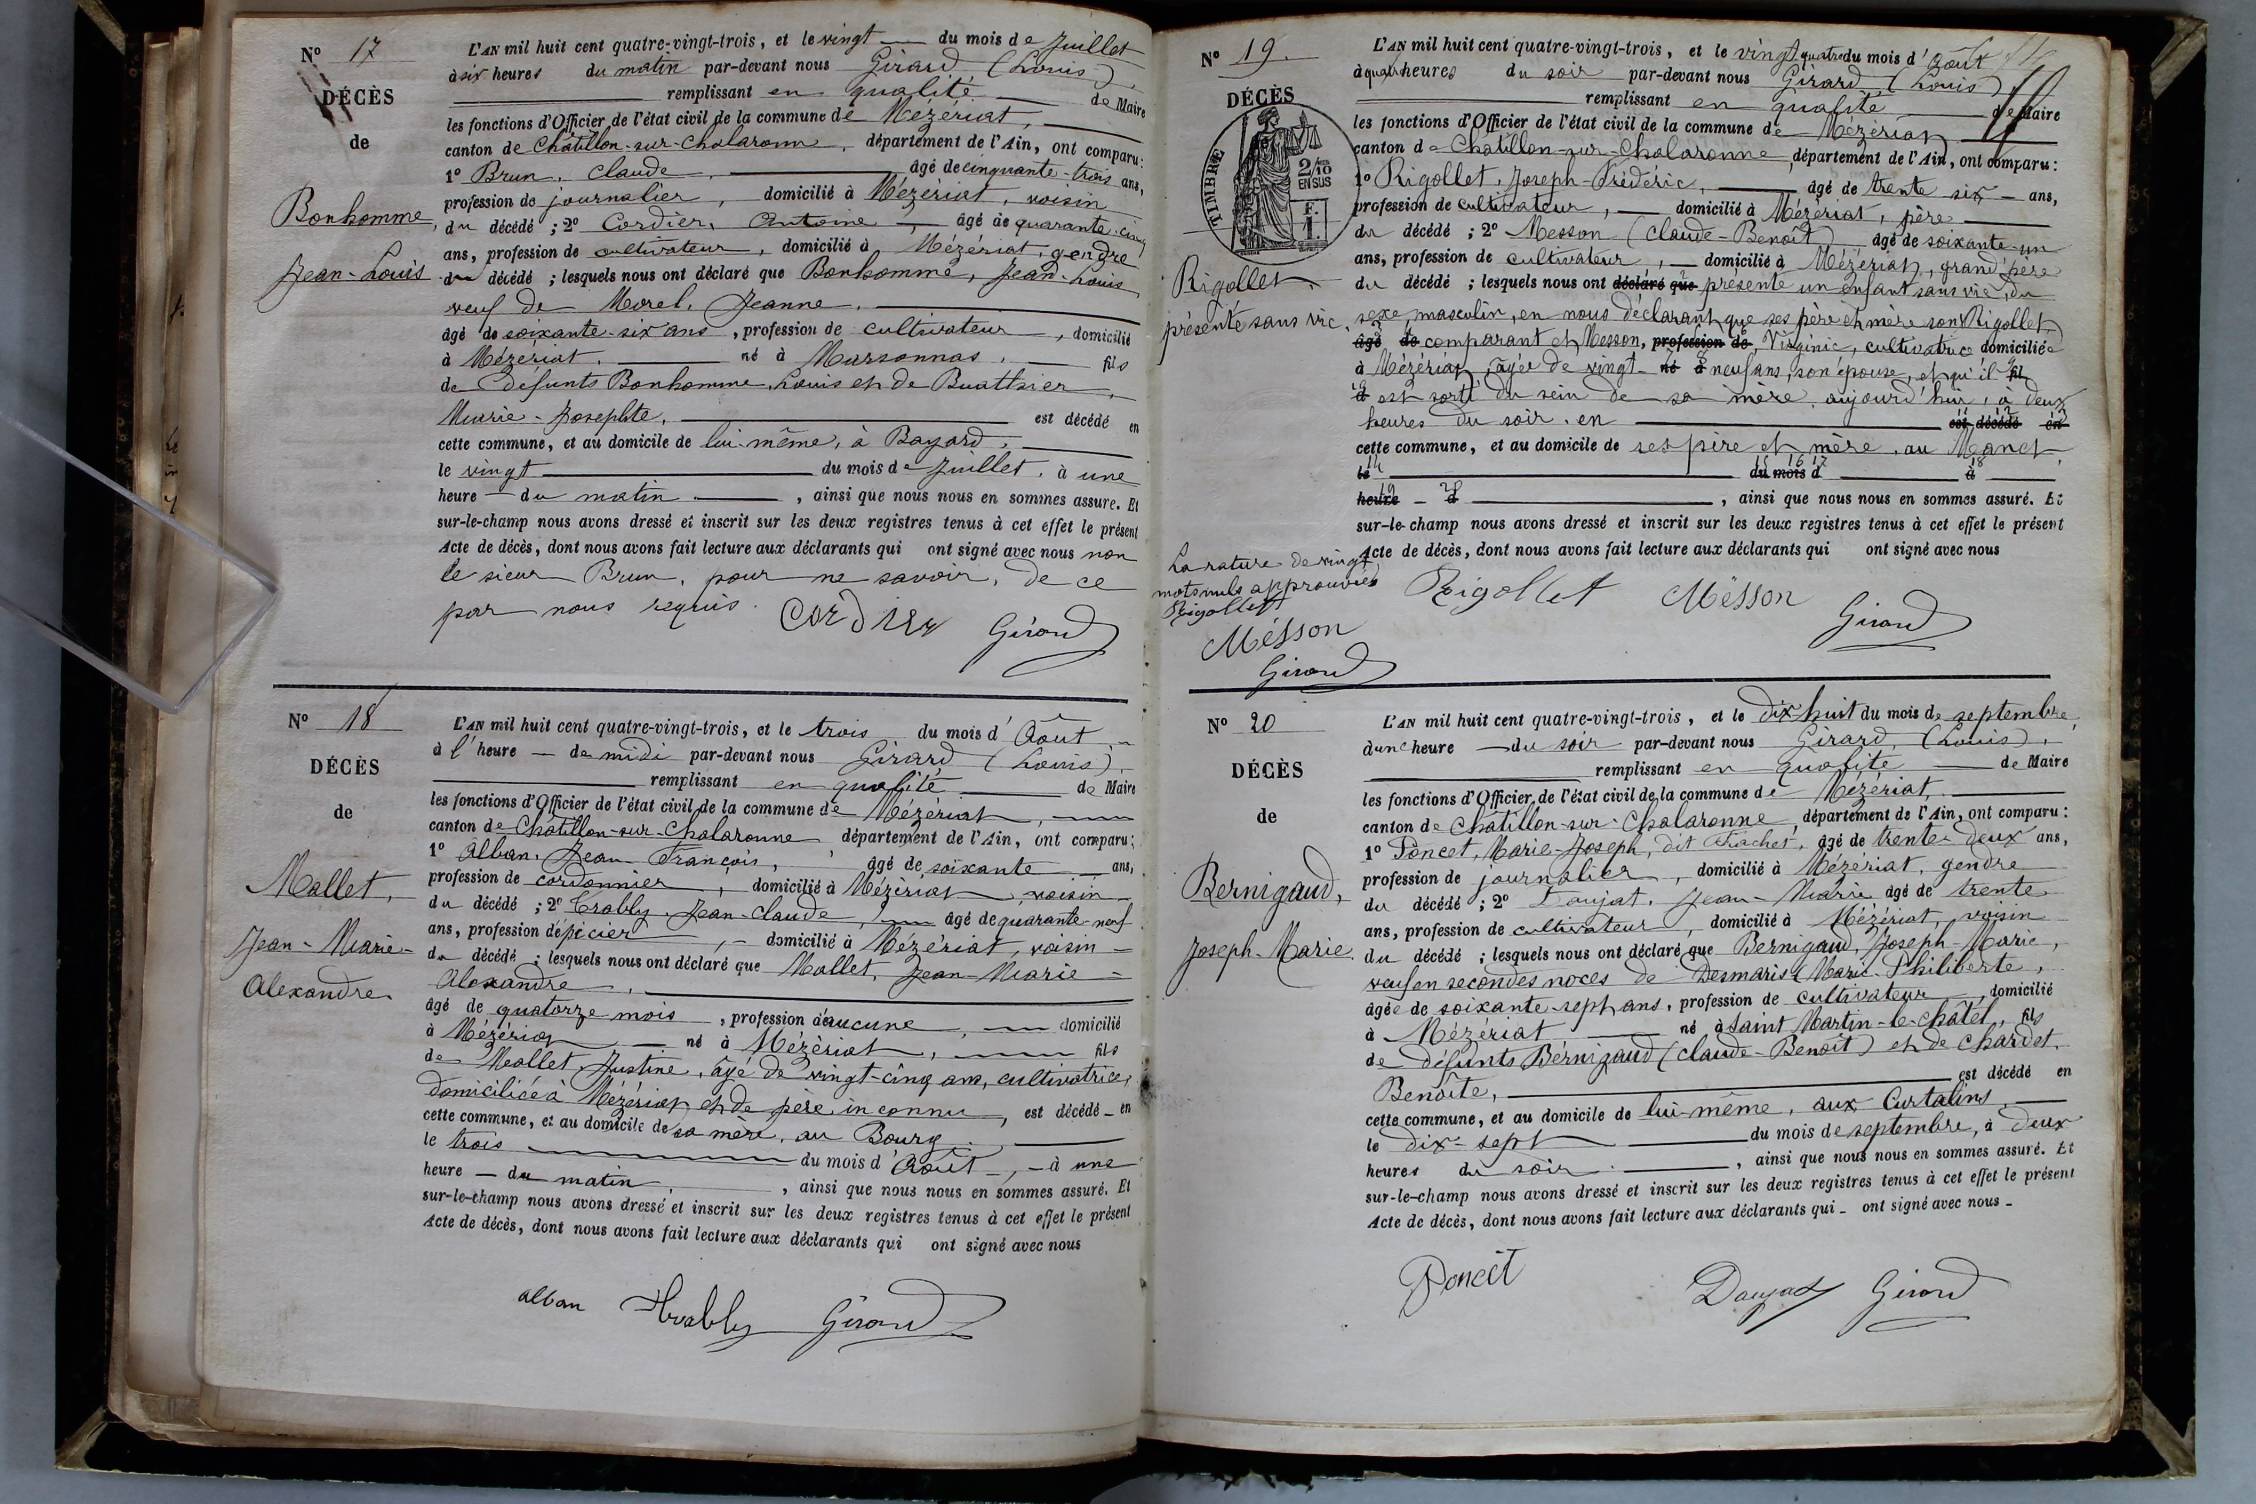 N° 17
DÉCÈS
de
Bonhomme,
Jean-Louis
L'AN mil huit cent quatre-vingt-trois, et le vingt du mois de Juillet
à six heures du matin par-devant nous Girard (Louis),
remplissant en qualité de Maire
les fonctions d'Officier de l'état civil de la commune de Mézériat,
canton de Châtillon-sur-Chalaronne, département de l'Ain, ont comparu:
1° Brun, Claude, âgé de cinquante-trois ans,
profession de journalier, domicilié à Mézériat, voisin
du décédé ; 2° Cordier, Antoine, âgé de quarante-cinq
ans, profession de cultivateur, domicilié à Mézériat, gendre
du décédé ; lesquels nous ont déclaré que Bonhomme, Jean-Louis,
veuf de Morel, Jeanne,
âgé de soixante-six ans, profession de cultivateur, domicilié
à Mézériat, né à Marsonnas, fils
de défunts Bonhomme, Louis et de Buathier,
Marie-Josephte, est décédé en
cette commune, et au domicile de lui-même, à Bayard,
le vingt du mois de Juillet, à une
heure du matin, ainsi que nous nous en sommes assuré. Et
sur-le-champ nous avons dressé et inscrit sur les deux registres tenus à cet effet le présent
Acte de décès, dont nous avons fait lecture aux déclarants qui ont signé avec nous non
le sieur Brun, pour ne savoir, de ce
par nous requis.
Cordier Girard
N° 18
DÉCÈS
de
Mallet,
Jean-Marie-
Alexandre.
L'AN mil huit cent quatre-vingt-trois, et le trois du mois d'Août
à l'heure de midi par-devant nous Girard (Louis),
remplissant en qualité de Maire
les fonctions d'Officier de l'état civil de la commune de Mézériat,
canton de Châtillon-sur-Chalaronne département de l'Ain, ont comparu;
1° Alban, Jean-François, âgé de soixante ans,
profession de cordonnier, domicilié à Mézériat, voisin
du décédé ; 2° Crably, Jean-Claude, âgé de quarante-neuf
ans, profession d'épicier, domicilié à Mézériat, voisin
du décédé ; lesquels nous ont déclaré que Mallet, Jean-Marie-
Alexandre,
âgé de quatorze mois, profession d'aucune, domicilié
à Mézériat, né à Mézériat, fils
de Mallet, Justine, âgé de vingt-cinq ans, cultivatrice,
domiciliée à Mézériat et de père inconnu, est décédé en
cette commune, et au domicile de sa mère, au Bourg,
le trois du mois d'Août, à une
heure du matin, ainsi que nous nous en sommes assuré. Et
sur-le-champ nous avons dressé et inscrit sur les deux registres tenus à cet effet le présent
Acte de décès, dont nous avons fait lecture aux déclarants qui ont signé avec nous
alban Girard
N° 19.
DÉCÈS
TIMBRE
2/10
EN SUS
F.
1.
Rigollet,
présenté sans vie.
L'AN mil huit cent quatre-vingt-trois, et le vingt-quatre du mois d'Août
à quatre heures du soir par-devant nous Girard (Louis),
remplissant en qualité de Maire
les fonctions d'Officier de l'état civil de la commune de Mézériat
canton de Châtillon-sur-Chalaronne, département de l'Ain, ont comparu:
1° Rigollet, Joseph-Frédéric, âgé de trente-six ans,
profession de cultivateur, domicilié à Mézériat, père
du décédé ; 2° Messon (Claude-Benoît) âgé de soixante-un
ans, profession de cultivateur, domicilié à Mézériat, grand'père
du décédé ; lesquels nous ont déclaré que présenté un enfant sans vie, du
sexe masculin, en nous déclarant que ses père et mère sont Rigollet,
âgé de comparant et Messon, profession de Virginie, cultivatrice domiciliée
à Mézériat, âgée de vingt-né à neuf ans, son épouse, et qu'il fil
d est sorti du sein de sa mère, aujourd'hui, à deux
heures du soir, en est décédé en
cette commune, et au domicile de ses père et mère, au Manet,
le du mois d à
heure d, ainsi que nous nous en sommes assuré. Et
sur-le-champ nous avons dressé et inscrit sur les deux registres tenus à cet effet le présent
Acte de décès, dont nous avons fait lecture aux déclarants qui ont signé avec nous
La rature de vingt
mots nuls approuvée
Rigollet
Mésson
Girard
Rigollet Mésson Girard
N° 20
DÉCÈS
de
Bernigaud,
Joseph-Marie.
L'AN mil huit cent quatre-vingt-trois, et le dix-huit du mois de septembre,
à une heure du soir par-devant nous Girard, (Louis),
remplissant en qualité de Maire
les fonctions d'Officier de l'état civil de la commune de Mézériat,
canton de Châtillon-sur-Chalaronne, département de l'Ain, ont comparu:
1° Poncet, Marie-Joseph, dit Frachet, âgé de trente-deux ans,
profession de journalier, domicilié à Mézériat, gendre
du décédé ; 2° Daujat, Jean-Marie âgé de trente
ans, profession de cultivateur, domicilié à Mézériat, voisin
du décédé ; lesquels nous ont déclaré que Bernigaud, Joseph-Marie,
veuf en secondes noces de Desmaris (Marie-Philiberte,
âgée de soixante-sept ans, profession de cultivateur domicilié
à Mézériat né à Saint Martin-le-châtel, fils
de défunts Bernigaud (Claude-Benoît) et de Chardet,
Benoîte, est décédé en
cette commune, et au domicile de lui-même, aux Curtalins,
le dix-sept du mois de septembre, à deux
heures du soir, ainsi que nous nous en sommes assuré. Et
sur-le-champ nous avons dressé et inscrit sur les deux registres tenus à cet effet le présent
Acte de décès, dont nous avons fait lecture aux déclarants qui ont signé avec nous
Poncet Daujat Girard